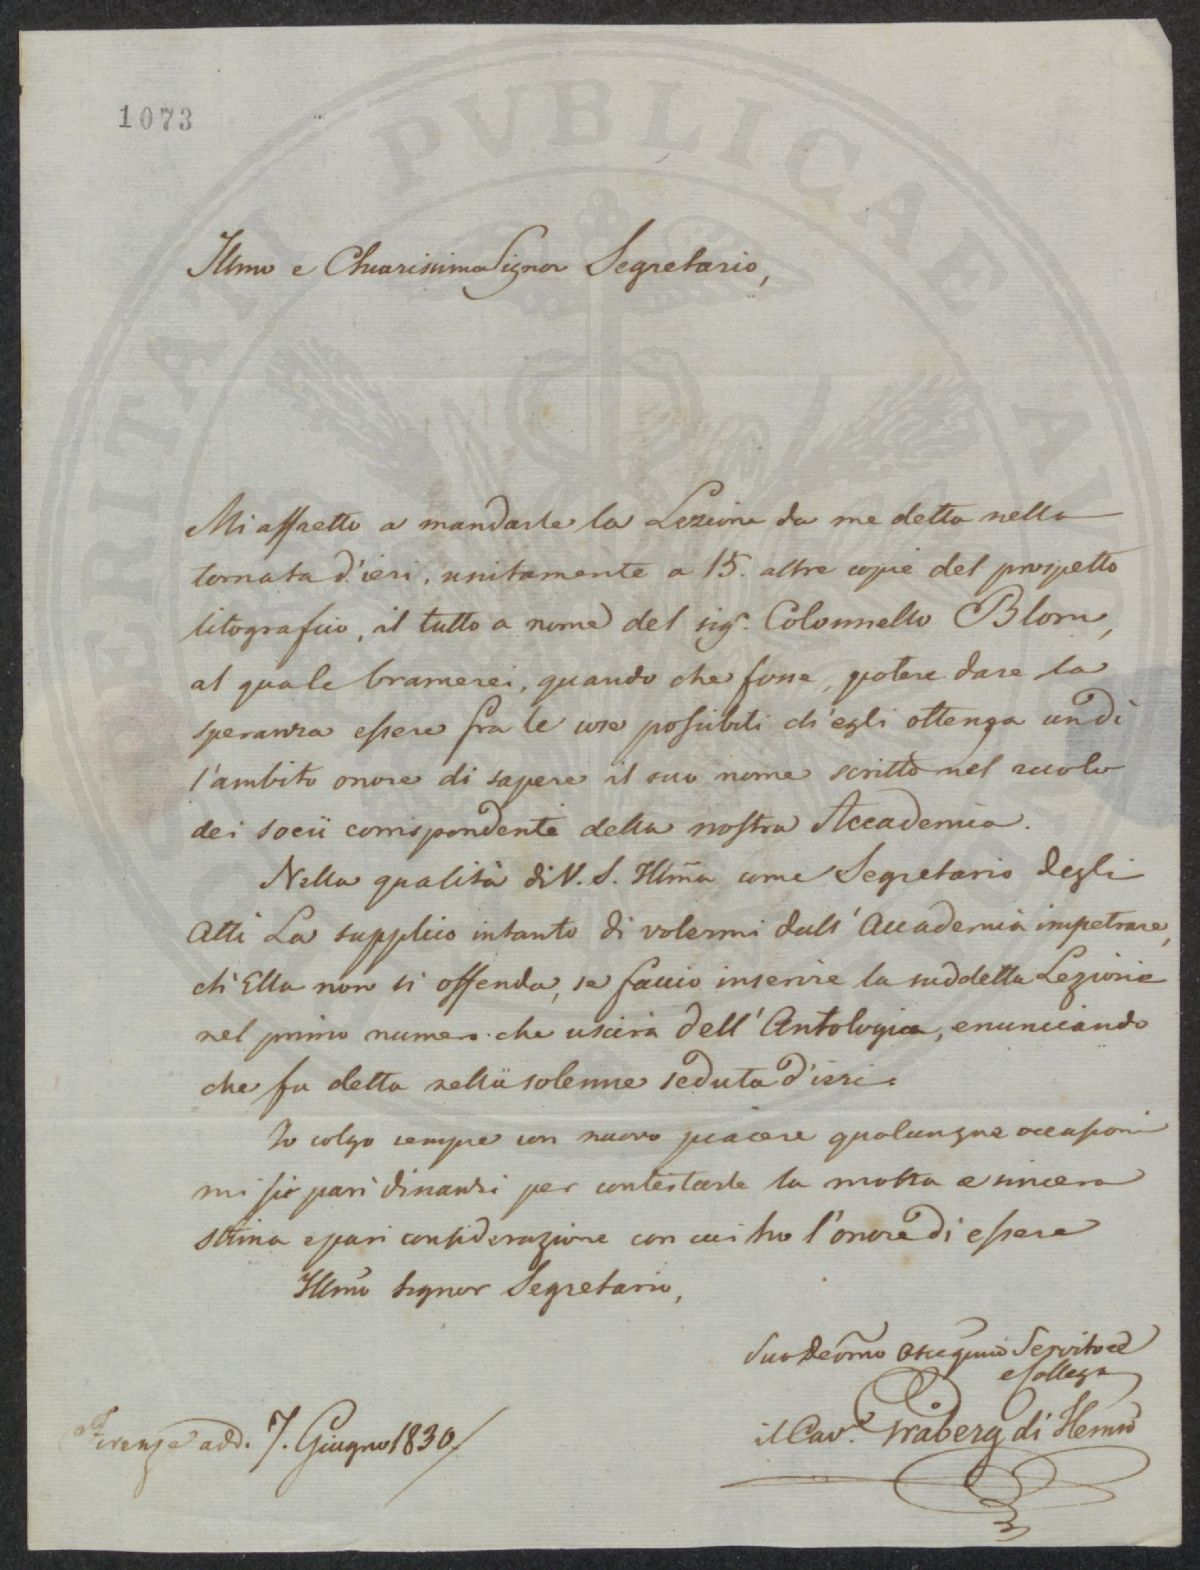 1073
Illmo e Chiarissimo Signor Segretario,
Mi affretto a mandarle la Lezione da me detta nella
tornata d'ieri, unitamente a 15. altre copie del prospetto
litografico, il tutto a nome del sigr. Colonnello Blom,
al quale bramerei, quando che fosse, potere dare la
speranza essere fra le cose possibili ch'egli ottenga un dì
l'ambito onore di sapere il suo nome scritto nel ruolo
dei socii corrispondenti della nostra Accademia.
Nella qualità di V. S. Illma come Segretario degli
Atti La supplico intanto di volermi dall'Accademia impetrare,
ch'Ella non si offenda, se faccio inserire la suddetta Lezione
nel primo numero che uscirà dell'Antologia, enunciando
che fu detta nella solenne seduta d'ieri.
Io colgo sempre con nuovo piacere qualunque occasione
mi si pari dinanzi per contestarle la molta e sincera
stima e pari considerazione con cui ho l'onore di essere
Illmo Signor Segretario,
Suo Devmo Ossequio Servitore
e Collega
il Cav.e Graberg di Hemsö
Firenze add. 7. Giugno 1830.
PVBLICAE